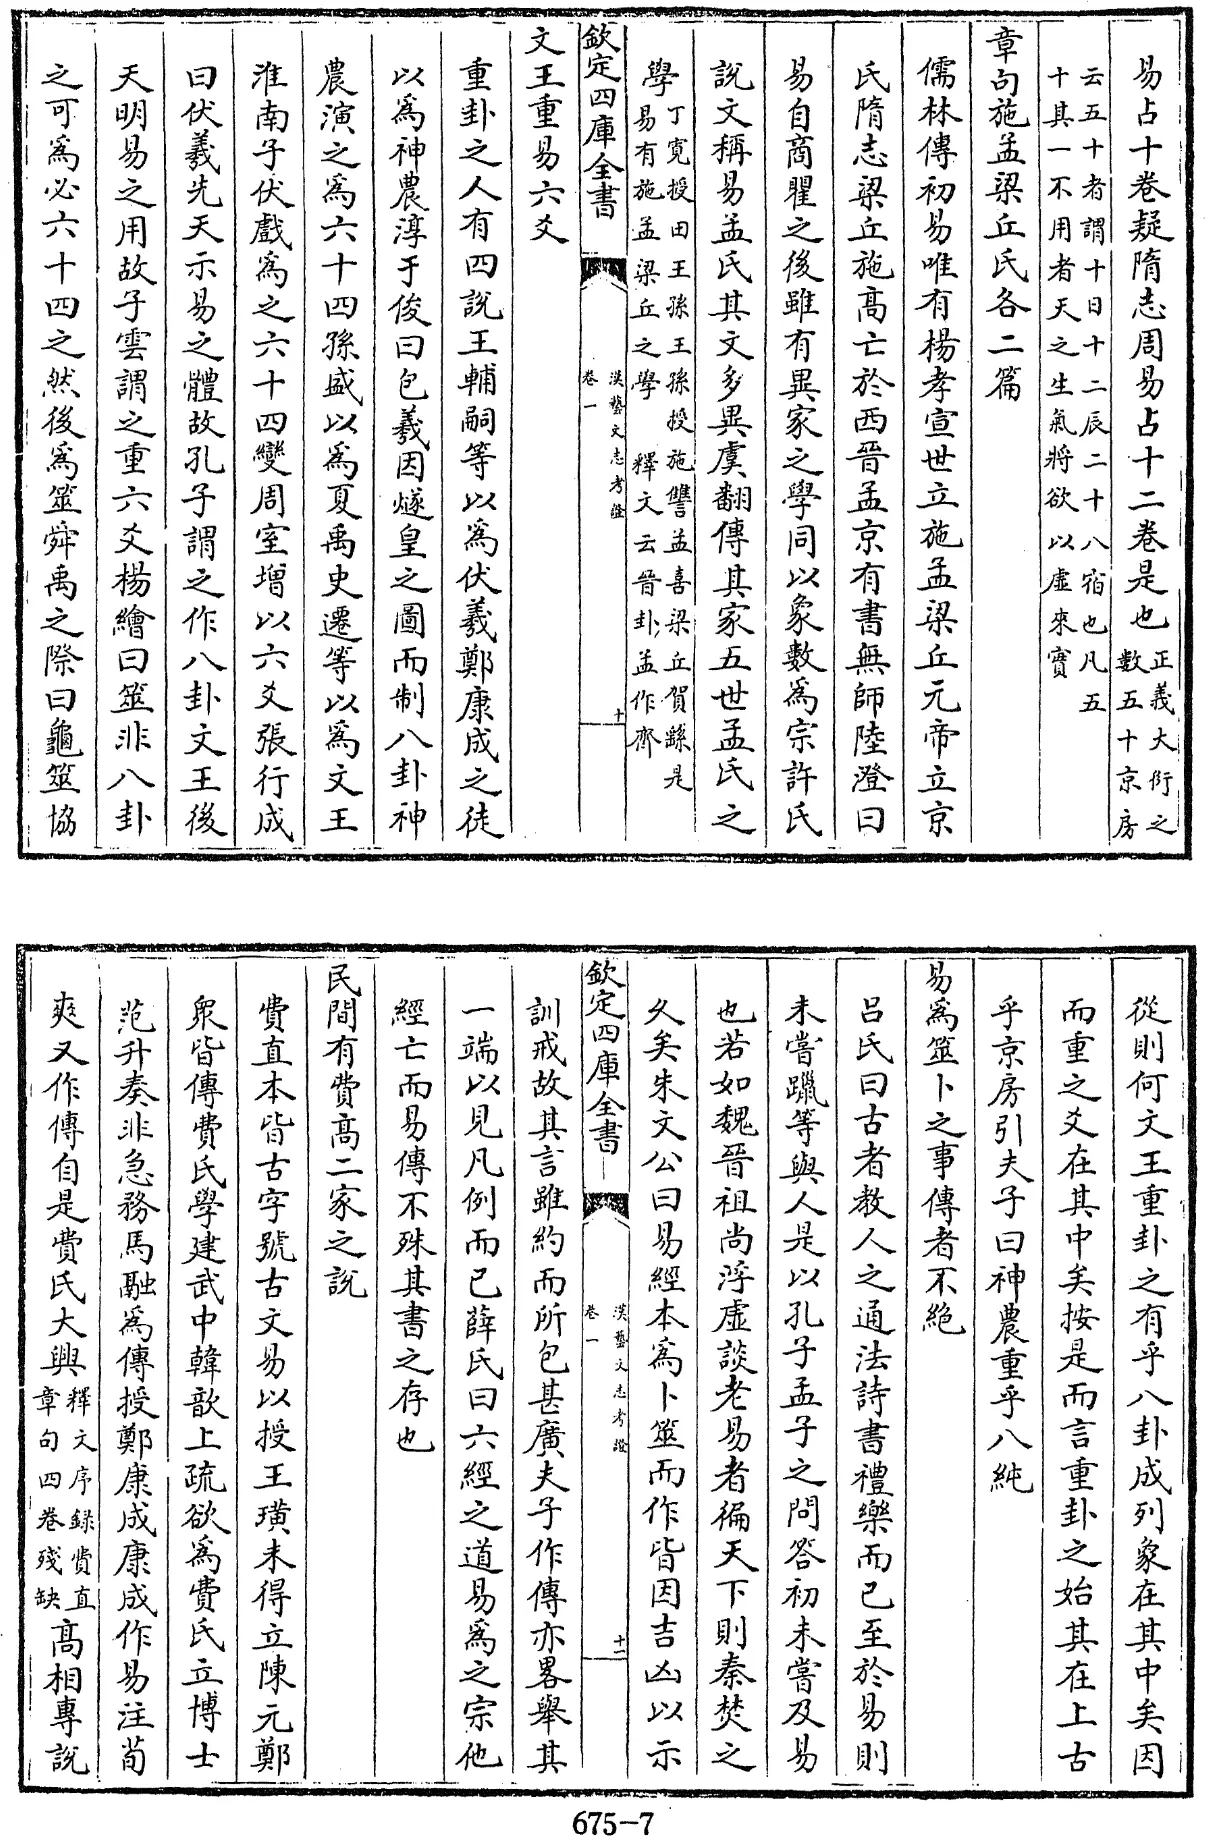 易占十卷疑隋志周易占十二卷是也正義大衍之數五十京房
云五十者謂十日十二辰二十八宿也凡五十其一不用者天之生氣將欲以虛來實
章句施孟梁丘氏各二篇
儒林傳初易唯有楊孝宣世立施孟梁丘元帝立京
氏隋志梁丘施高亡於西晉孟京有書無師陸澄曰
易自商瞿之後雖有異家之學同以象數為宗許氏
說文稱易孟氏其文多異虞翻傳其家五世孟氏之
學丁寬授田王孫王孫授施讐孟喜梁丘賀繇是易有施孟梁丘之學 釋文云晉卦孟作齊
欽定四庫全書 漢藝文志考證 卷一 十
文王重易六爻
重卦之人有四說王輔嗣等以為伏羲鄭康成之徒
以為神農淳于俊曰包羲因燧皇之圖而制八卦神
農演之為六十四孫盛以為夏禹史遷等以為文王
淮南子伏戲為之六十四變周室增以六爻張行成
曰伏羲先天示易之體故孔子謂之作八卦文王後
天明易之用故子雲謂之重六爻楊繪曰筮非八卦
之可為必六十四之然後為筮舜禹之際曰龜筮協
從則何文王重卦之有乎八卦成列象在其中矣因
而重之爻在其中矣按是而言重卦之始其在上古
乎京房引夫子曰神農重乎八純
易為筮卜之事傳者不絶
呂氏曰古者教人之通法詩書禮樂而已至於易則
未嘗躐等與人是以孔子孟子之問答初未嘗及易
也若如魏晉祖尚浮虛談老易者徧天下則秦焚之
久矣朱文公曰易經本為卜筮而作皆因吉凶以示
欽定四庫全書 漢藝文志考證 卷一 十一
訓戒故其言雖約而所包甚廣夫子作傳亦畧舉其
一端以見凡例而已薛氏曰六經之道易為之宗他
經亡而易傳不殊其書之存也
民間有費高二家之說
費直本皆古字號古文易以授王璜未得立陳元鄭
衆皆傳費氏學建武中韓歆上疏欲為費氏立博士
范升奏非急務馬融為傳授鄭康成康成作易注荀
爽又作傳自是費氏大興釋文序録費直章句四卷殘缺高相專說
675-7